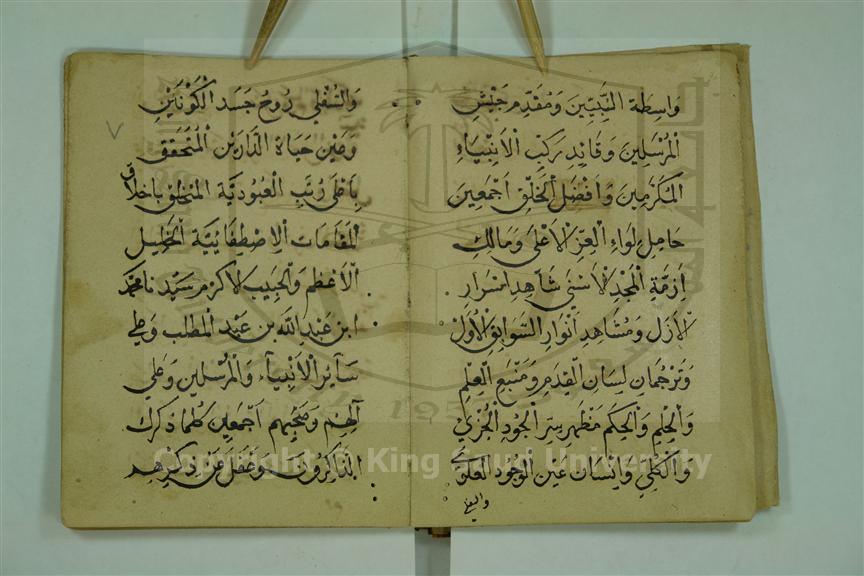 وَاسِطَةِ النَّبِيِّينَ وَمُقَدِّمِ جَيْشِ
الْمُرْسَلِينَ وَقَائِدِ رَكْبِ الْاَنْبِيَاءِ
الْمُكَرَّمِينَ وَاَفْضَلِ الْخَلْقِ اَجْمَعِينَ
حَامِلِ لِوَاءِ الْعِزِّ الْاَعْلَى وَمَالِكِ
اَزِمَّةِ الْمَجْدِ الْاَسْنَى شَاهِدِ اَسْرَارِ
الْاَزَلِ وَمُشَاهِدِ اَنْوَارِ السَّوَابِقِ الْاُوَلِ
وَتَرْجُمَانِ لِسَانِ الْقِدَمِ وَمَنْبَعِ الْعِلْمِ
وَالْحِلْمِ وَالْحِكَمِ مَظْهَرِ سِرِّ الْجُودِ الْجُزْئِيِّ
وَالْكُلِّيِّ وَاِنْسَانِ عَيْنِ الْوُجُودِ الْعُلْوِيِّ
والسفلي
وَالسُّفْلِي رُوحِ جَسَدِ الْكَوْنَيْنِ
وَعَيْنِ حَيَاةِ الدَّارَيْنِ الْمُتَحَقِّقِ
بِاَعْلَى رُتَبِ الْعُبُودِيَّةِ الْمُتَخَلِّقِ بِاَخْلَاقِ
الْمَقَامَاتِ الْاِصْطِفَائِيَّةِ الْخَلِيلِ
الْاَعْظَمِ وَالْحَبِيبِ الْاَكْرَمِ سَيِّدِنَا مُحَمَّدِ
ابْنِ عَبْدِ اللّٰهِ بْنِ عَبْدِ الْمُطَّلِبِ وَعَلٰى
سَآئِرِ الْاَنْبِيَآءِ وَالْمُرْسَلِينَ وَعَلٰى
اٰلِهِمْ وَصَحْبِهِمْ اَجْمَعِينَ كُلَّمَا ذَكَرَكَ
الذَّاكِرُونَ وَغَفَلَ عَنْ ذِكْرِهِمُ
Copyright © King Saud University